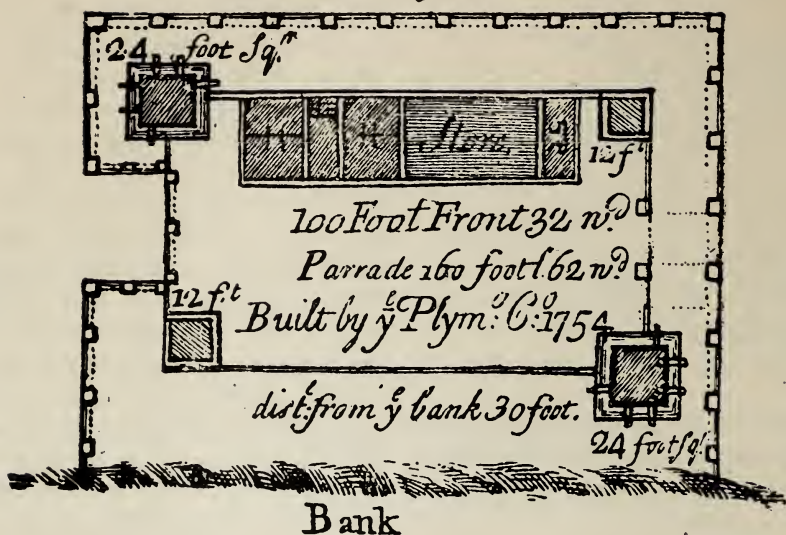 24 foot Sq.r
H H Store, 32
12 f.t
100 Foot Front 32 w.d
Parrade 160 foot l. 62 w.d
12 f.t
Built by ye Plym.o C.o 1754
dist.t from ye bank 30 foot.
24 foot Sq.r
Bank